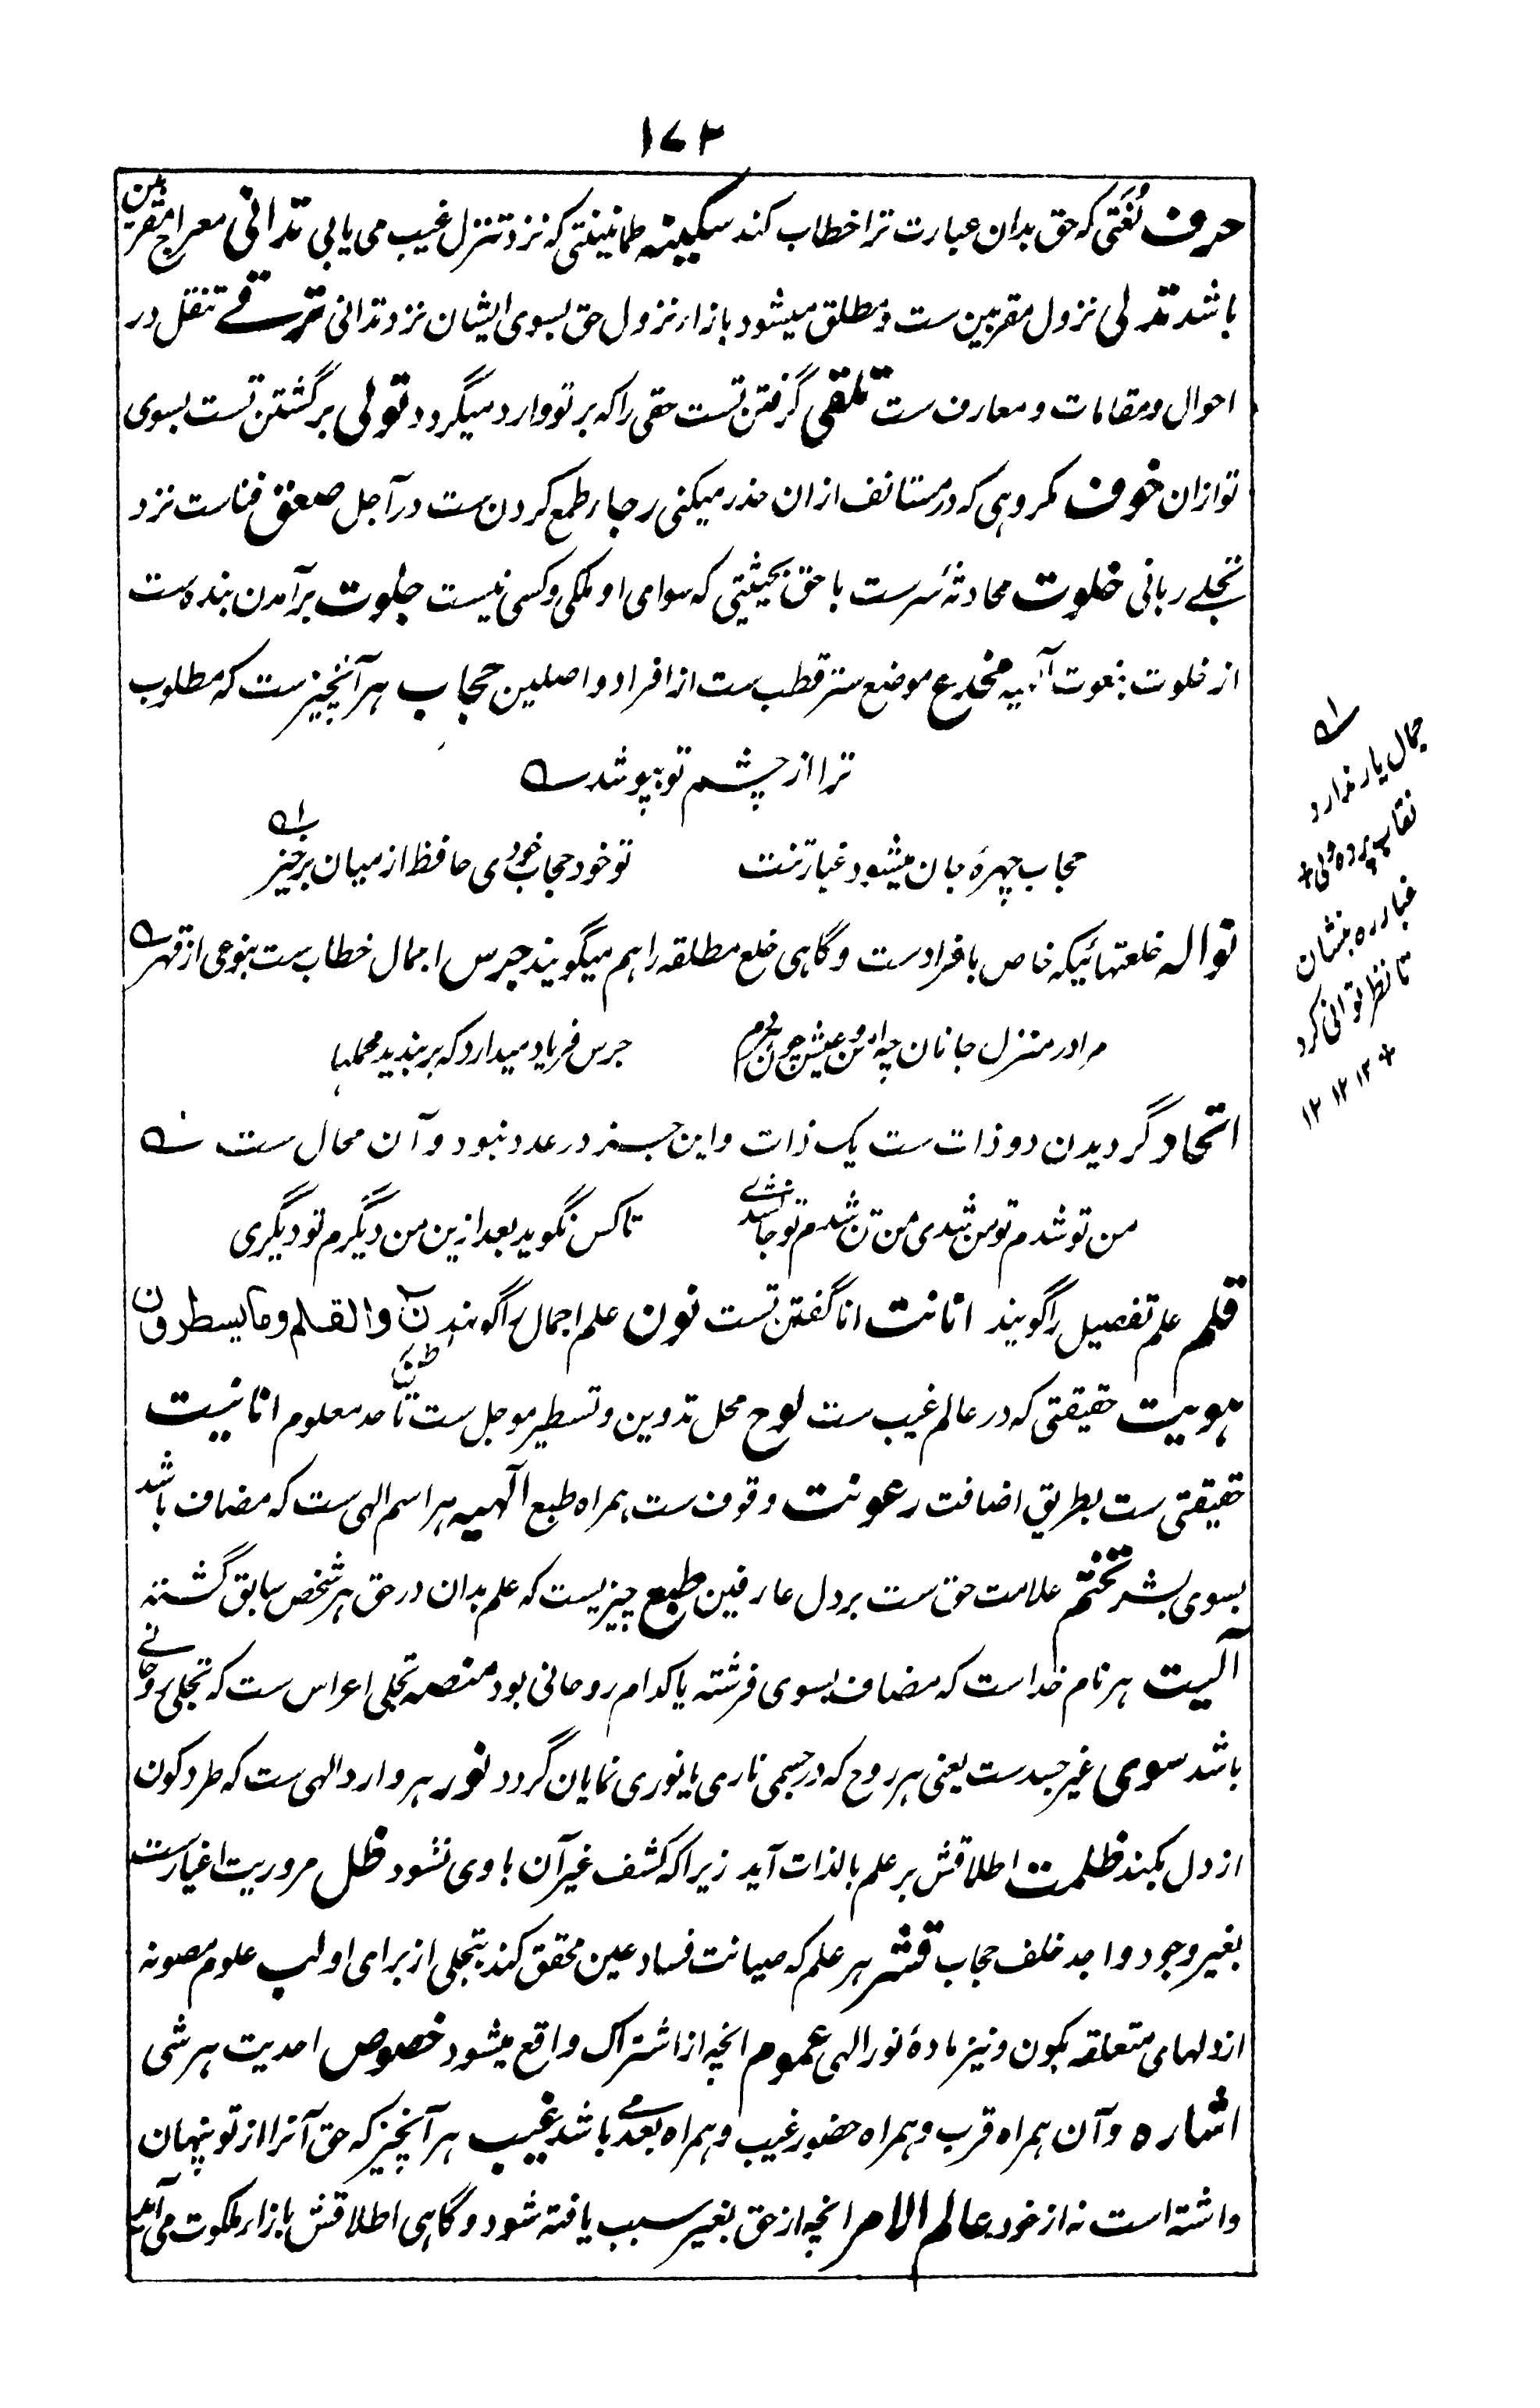 ۱۷۲
حرف لُغتی که حق بدان عبارت ترا خطاب کند سکینه طمانینتی که نزد تنزل غیب می یابی تدانی معراج مقربین
باشد تدلی نزول مقربین ست و مطلق میشود بازار نزول حق بسوی ایشان نزد تدانی ترقی تنقل در
احوال و مقامات و معارف ست تلقی گرفتن تست حقی را که بر تو وارد میگردد تولی برگشتن تست بسوی
تو از ان خوف مکروهی که در مستانف از ان حذر میکنی رجاء طمع کردن ست در آجل صعق فناست نزد
تجلے ربانی خلوت محادثهٔ سر ست با حق بحیثیتی که سوای او ملکی و کسی نیست جلوت برآمدن بنده ست
از خلوت بنعوت آلهیه مخدع موضع ستر قطب ست از افراد واصلین حجاب هر آنچیز ست که مطلوب
ترا از چشم تو بپوشد
حجاب چهرهٔ جان میشود غبار تنت تو خود حجاب خودی حافظ از میان برخیز
نواله خلعتهائیکه خاص بافراد ست و گاهی خلع مطلقه را هم میگویند جرس اجمال خطاب ست بنوعی از قهر
مرا در منزل جانان چه امن و عیش چون هردم جرس فریاد میدارد که بربندید محملها
اتحاد گردیدن دو ذات ست یک ذات و این جز در عدد نبود و آن محال ست
من تو شدم تو من شدی من تن شدم تو جان شدی تا کس نگوید بعد ازین من دیگرم تو دیگری
قلم علم تفصیل را گویند انانت انا گفتن تست نون علم اجمال را گویند نٓ والقلم وما یسطرون
هویت حقیقتی که در عالم غیب ست لوح محل تدوین و تسطیر موجل ست تا حد معلوم انانیت
حقیقتی ست بطریق اضافت رعونت وقوف ست همراه طبع آلهیه هر اسم الهی ست که مضاف باشد
بسوی بشر تختم علامت حق ست بر دل عارفین طبع چیزیست که علم بدان در حق هر شخص سابق گشته
آلیت هر نام خداست که مضاف بسوی فرشته یا کدام روحانی بود منصه تجلی اعراس ست که تجلی روحانے
باشد سوی غیر جسد ست یعنی هر روح که در جسمی ناری یا نوری نمایان گردد نور هر وارد الهی ست که طرد کون
از دل بکند ظلمت اطلاقش بر علم بالذات آید زیرا که کشف غیر آن باوی نشود ظل مروریت اغیار ست
بغیر وجود واجد خلف حجاب قشر هر علم که صیانت فساد عین محقق کند بتجلی از برای او لب علوم مصونه
از دلهای متعلقه بکون و نیز مادهٔ نور الهی عموم انچه از اشتراک واقع میشود خصوص احدیت هر شی
اشاره و آن همراه قرب و همراه حضور غیب و همراه بعدے باشد غیب هر آنچیز که حق آنرا از تو پنهان
داشته است نه از خود عالم الامر انچه از حق بغیر سبب یافته شود و گاهی اطلاقش بازاء ملکوت می آید
جمال یار ندارد
نقاب پرده ولی
غبار ره بنشان
تا نظر توانی کرد
۱۲ ۱۲ ۱۲